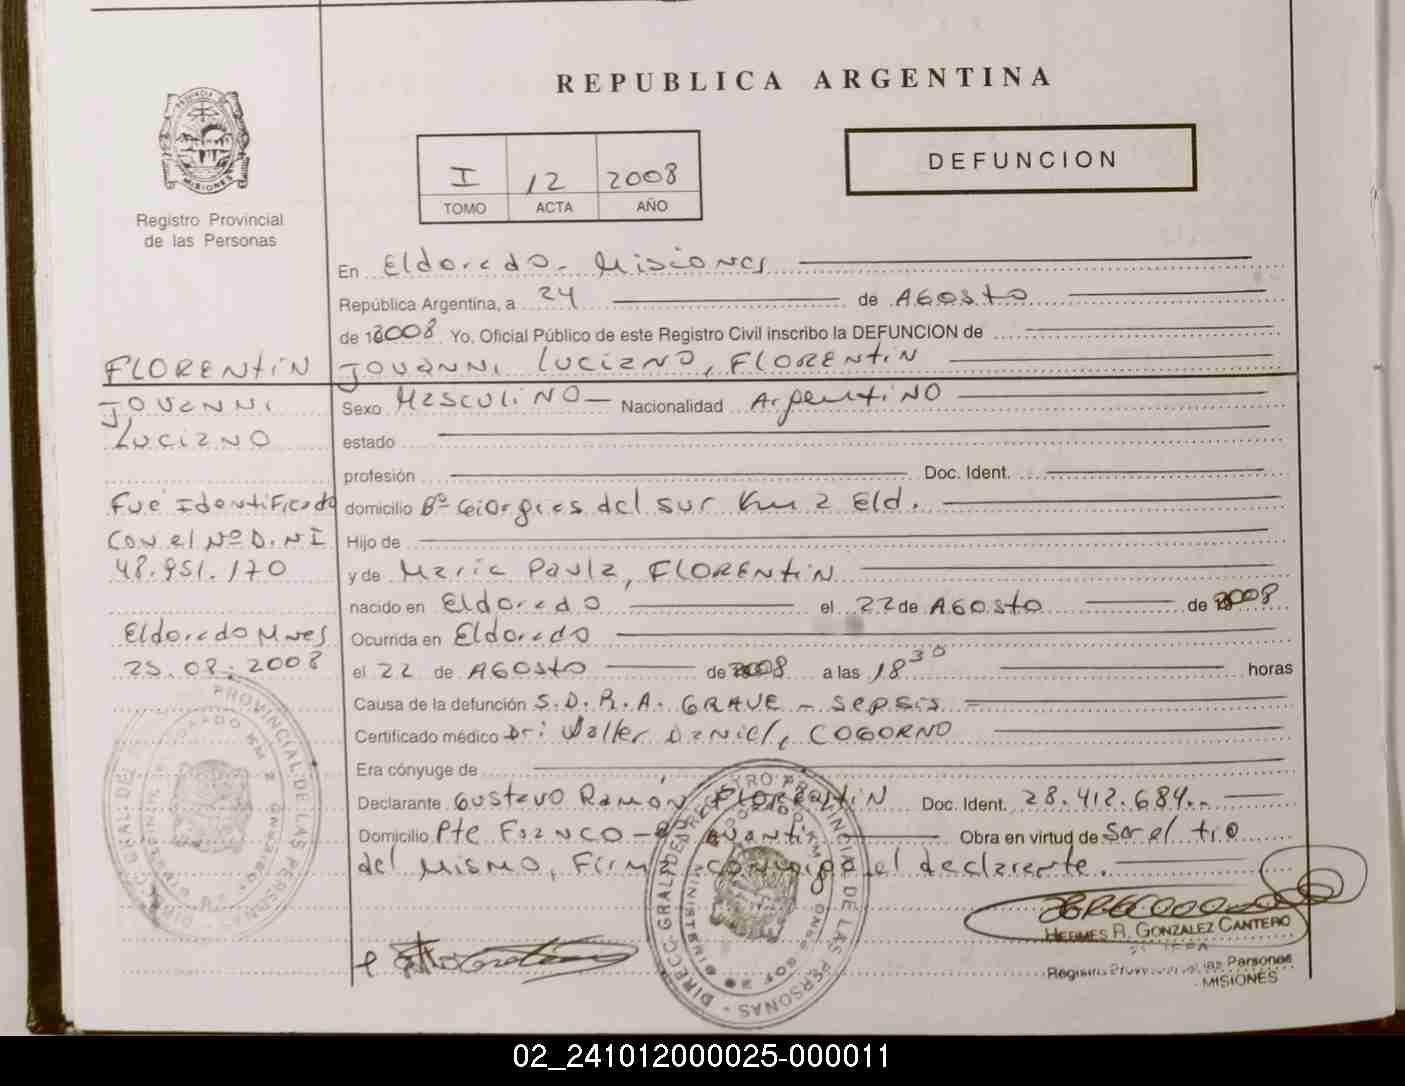 REPUBLICA ARGENTINA
PROVINCIA DE
MISIONES
Registro Provincial
de las Personas
I 12 2008
TOMO ACTA AÑO
DEFUNCION
En Eldorado - Misiones
República Argentina, a 24 de AGosto
de 2008 Yo, Oficial Público de este Registro Civil inscribo la DEFUNCION de
JOVANNI LUCIANO, FLORENTIN
Sexo MASCULINO Nacionalidad ArgentiNO
estado
profesión Doc. Ident.
domicilio Bº del sur Km 2 Eld.
Hijo de
y de Maria Paula, FLORENTIN
nacido en Eldorado el 22 de AGosto de 2008
Ocurrida en Eldorado
el 22 de AGosto de 2008 a las 18 30 horas
Causa de la defunción S.D.R.A. GRAVE - sepsis
Certificado médico Dr: Walter Daniel, COGORNO
Era cónyuge de
Declarante Gustavo Ramón FLORENTIN Doc. Ident. 28.412.684
Domicilio Pte Franco Obra en virtud de Ser el tio
del Mismo, Firma el declarante.
HERMES R. GONZALEZ CANTERO
Registro Provincial de las Personas
MISIONES
FLORENTIN
JOVANNI
LUCIANO
Fué Identificado
Con el Nº D.N.I
48.951.170
Eldorado Mnes
25.08.2008
PROVINCIAL DE LAS PERSONAS
DIRECC. GRAL. DEL REGISTRO PROVINCIAL DE LAS PERSONAS
02_241012000025-000011